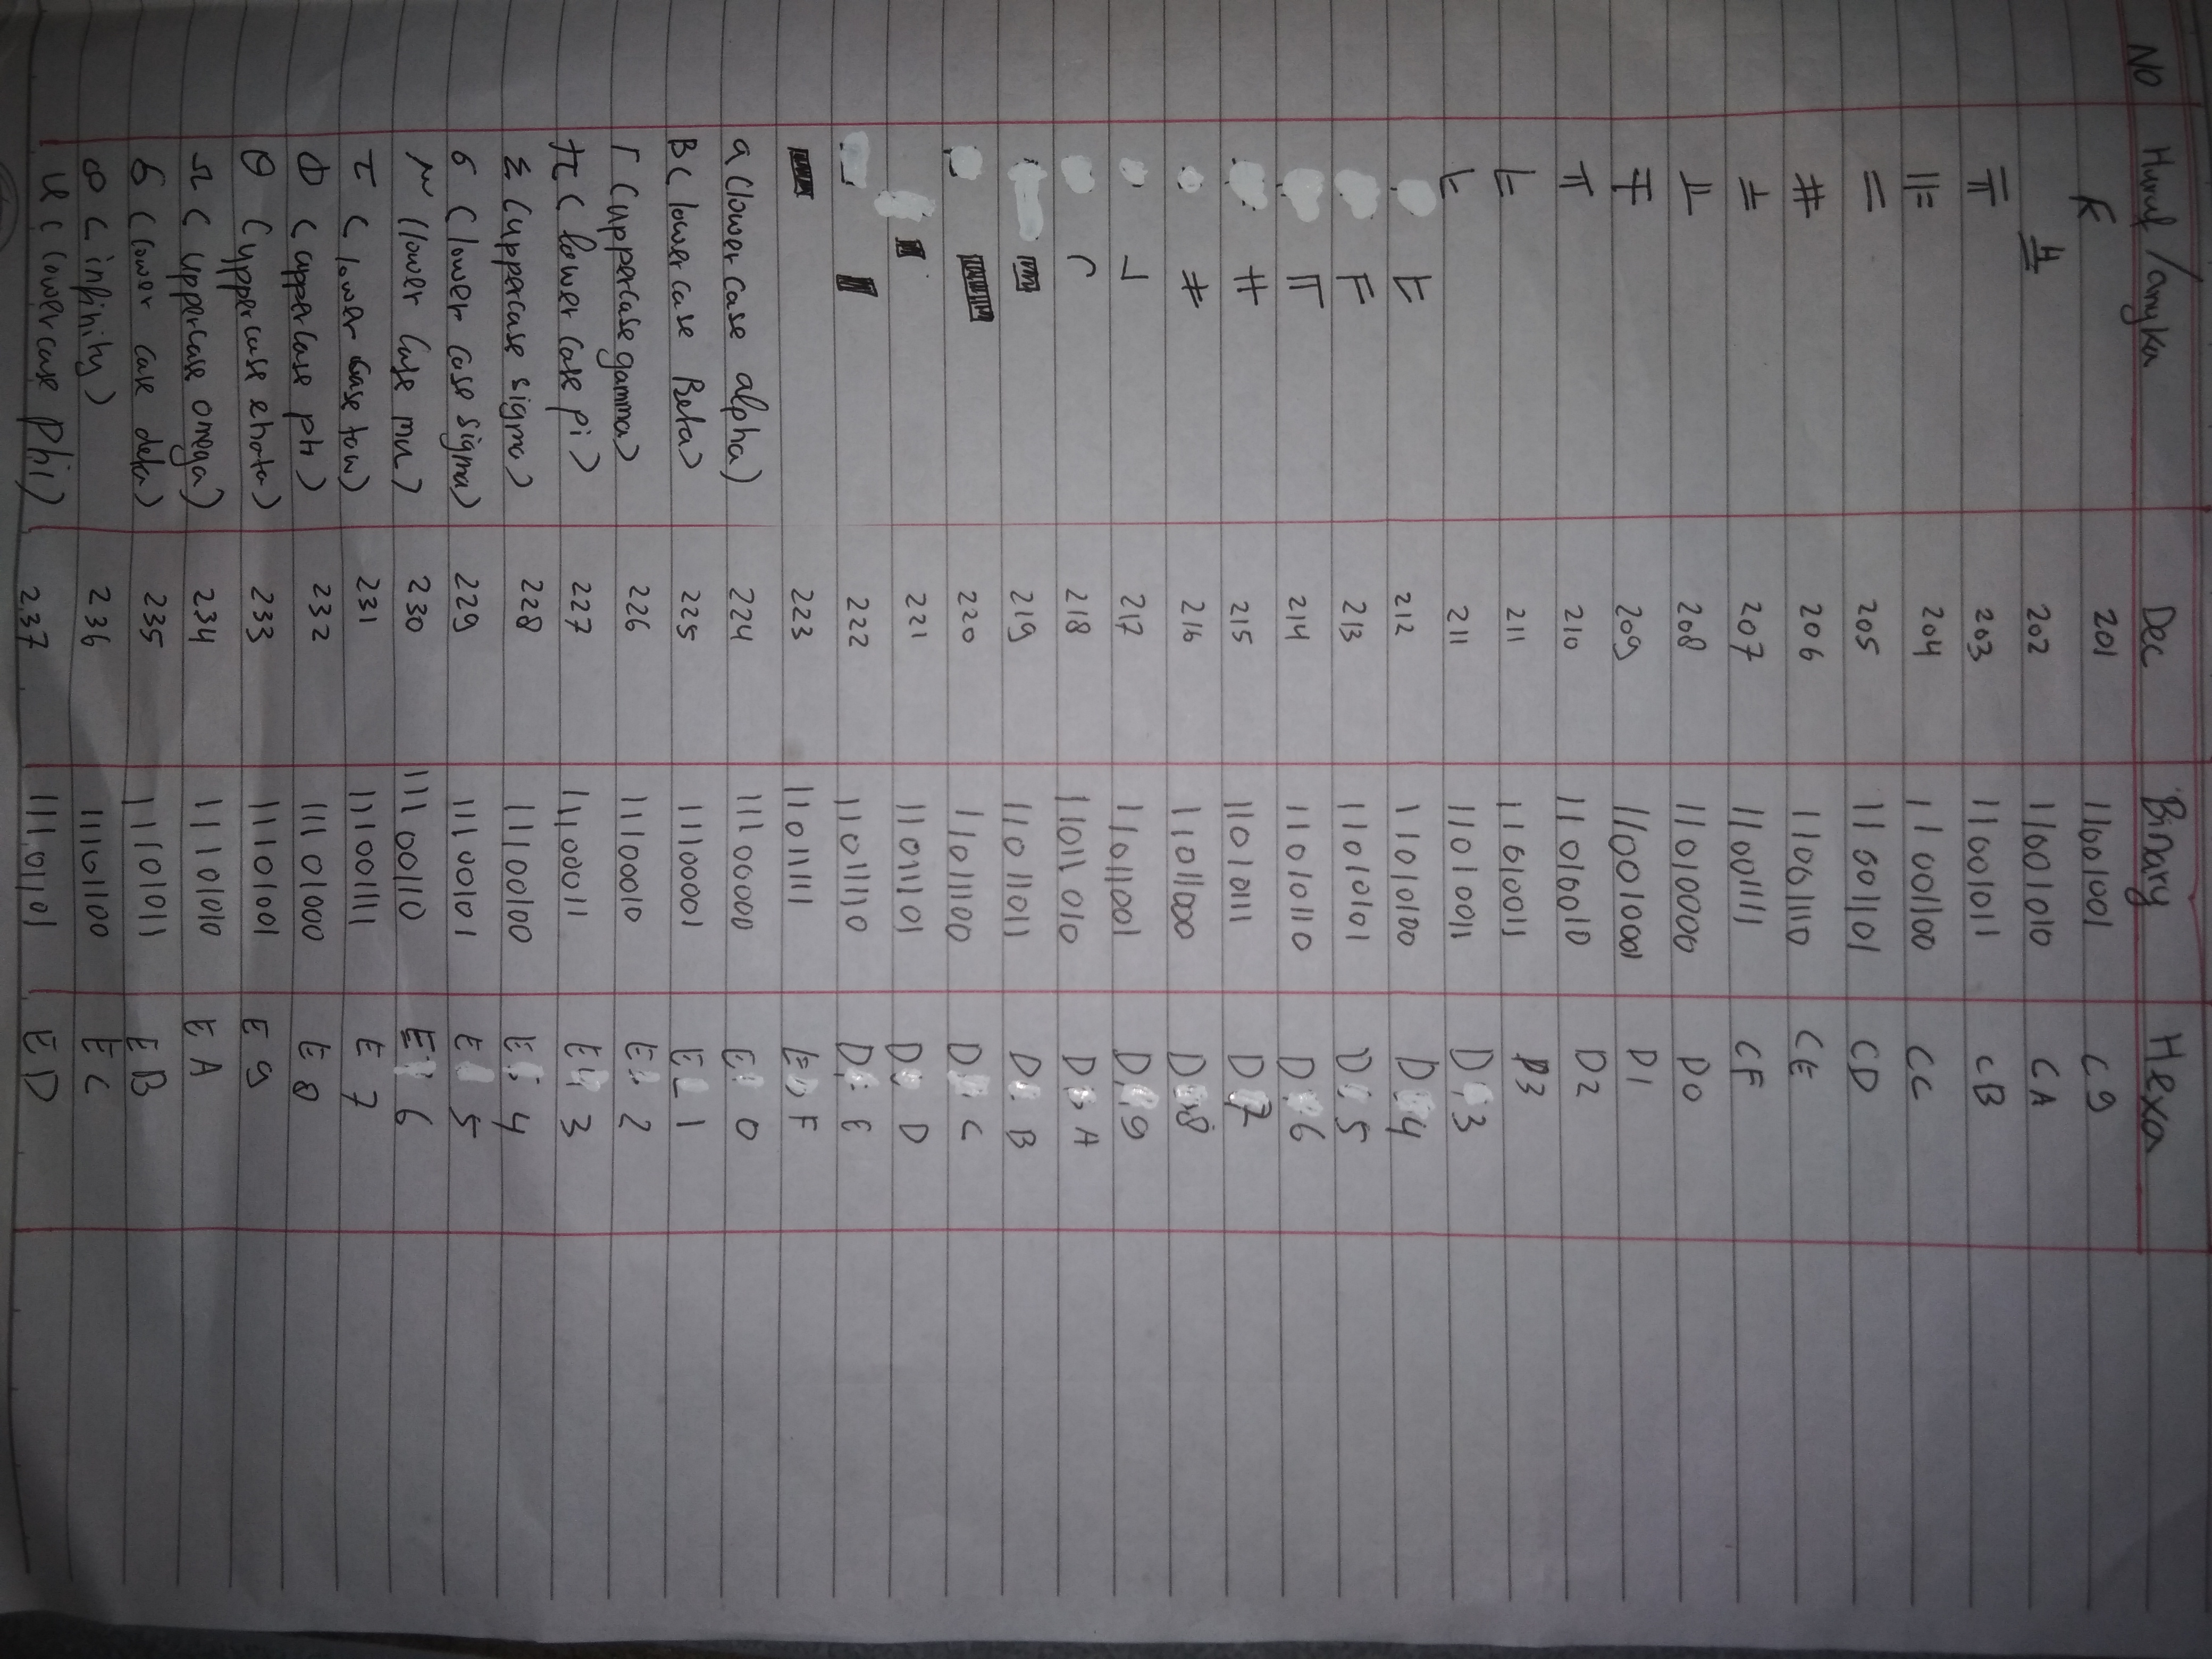 NO Huruf /angka Dec Binary Hexa
╔ 201 11001001 C9
╩ 202 11001010 CA
╦ 203 11001011 CB
╠ 204 11001100 CC
═ 205 11001101 CD
╬ 206 11001110 CE
╧ 207 11001111 CF
╨ 208 11010000 D0
╤ 209 110010001 D1
╥ 210 11010010 D2
╙ 211 11010011 D3
╙ 211 11010011 D3
╘ 212 11010100 D4
╒ 213 11010101 D5
╓ 214 11010110 D6
╫ 215 11010111 D7
╪ 216 11011000 D8
┘ 217 11011001 D9
┌ 218 11011010 DA
█ 219 11011011 DB
▄ 220 11011100 DC
▌ 221 11011101 DD
▐ 222 11011110 DE
▀ 223 11011111 E F
a (lower case alpha) 224 11100000 E 0
B ( lowercase Beta) 225 11100001 E 1
Γ (uppercase gamma) 226 11100010 E 2
π ( lower case pi) 227 11100011 E 3
Σ (uppercase sigma) 228 11100100 E 4
σ (lower case sigma) 229 11100101 E 5
μ (lower case mu) 230 11100110 E 6
τ (lower case tow) 231 111001111 E 7
Φ (uppercase phi) 232 11101000 E 8
Θ (uppercase ehata) 233 11101001 E 9
Ω ( uppercase omega) 234 11101010 E A
δ (lower case delta) 235 11101011 EB
∞ ( infinity) 236 11101100 EC
φ ( lowercase phi) 237 11101101 ED